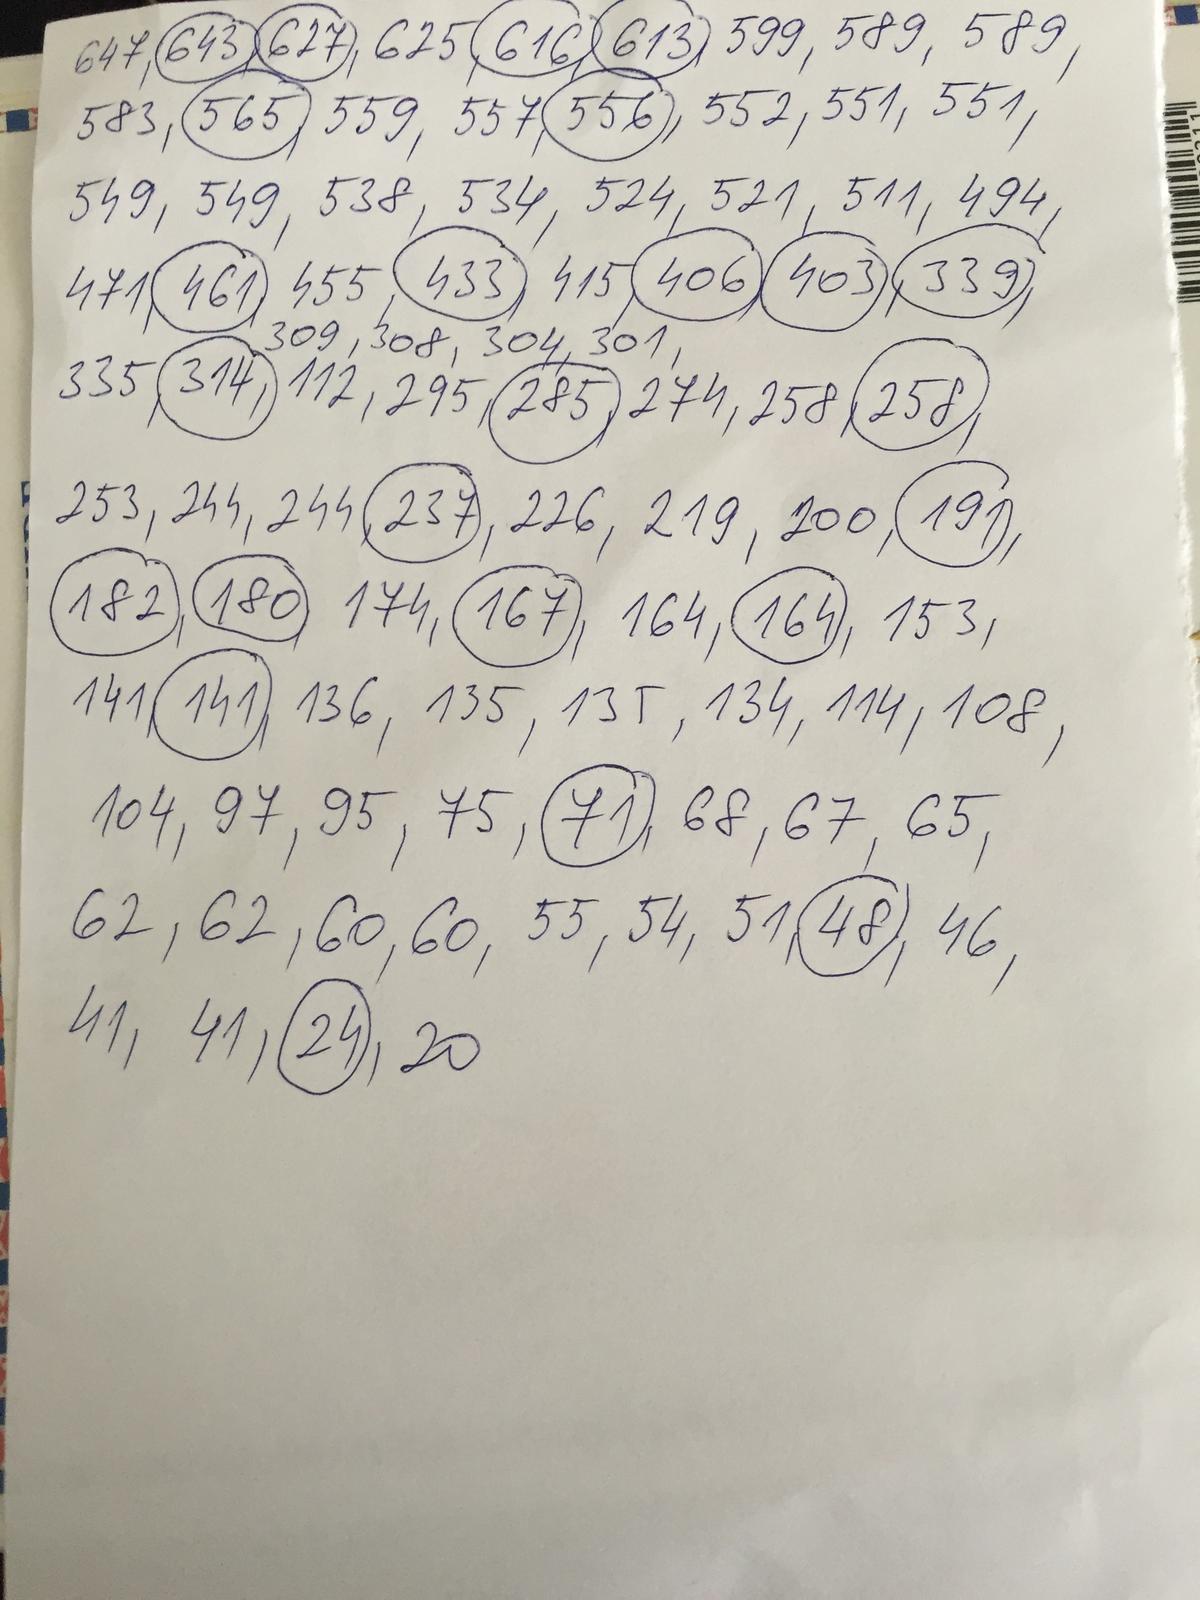 647, 643, 627, 625, 616, 613, 599, 589, 589,
583, 565, 559, 557, 556, 552, 551, 551,
549, 549, 538, 534, 524, 521, 511, 494,
471, 461, 455, 433, 415, 406, 403, 339,
309, 308, 304, 301,
335, 314, 112, 295, 285, 274, 258, 258,
253, 244, 244, 237, 226, 219, 200, 191,
182, 180, 174, 167, 164, 164, 153,
141, 141, 136, 135, 135, 134, 114, 108,
104, 97, 95, 75, 71, 68, 67, 65,
62, 62, 60, 60, 55, 54, 51, 48, 46,
41, 41, 24, 20